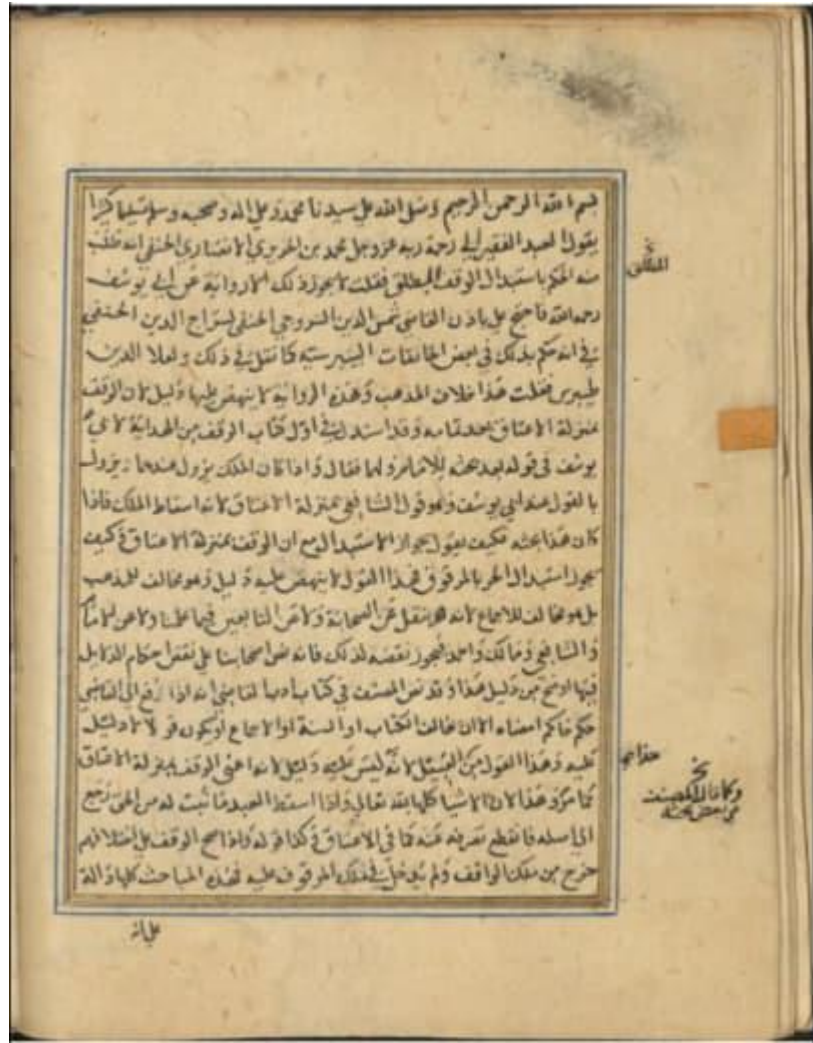 بسم الله الرحمن الرحيم وصلى الله على سيدنا محمد وعلى اله وصحبه وسلم تسليما كثيرا
يقول العبد الفقير الى رحمة ربه عز وجل محمد بن الحريري الانصاري الحنفي انه طلب
منه الحكم باستبدال الوقف المطلق فقلت لا يجوز ذلك الا رواية عن ابي يوسف
رحمه الله فاحتج علي باذن القاضي شمس الدين السروجي الحنفي لسراج الدين الحنفي
في انه حكم بذلك في بعض الخانقات البيبرسية كما نقل في ذلك ولعلا الدين
طيبرس فقلت هذا خلاف المذهب وهذه الرواية لا ينهض عليها دليل لان الوقف
بمنزلة الاعتاق وقد استدل في اول كتاب الوقف من الهداية لابي
يوسف في قوله بعد بحثه للامام ولهما فقال واذا كان الملك يزول عندهما يزول
بالقول عند ابي يوسف وهو قول الشافعي بمنزلة الاعتاق لانه اسقاط الملك فاذا
كان هذا بحثه فكيف يقول بجواز الاستبدال مع ان الوقف بمنزلة الاعتاق وكيف
يجوز استبدال الحر بالمرقوق فهذا القول لا ينهض عليه دليل وهو مخالف للمذهب
بل هو مخالف للاجماع لانه لم ينقل عن الصحابة ولا عن التابعين فيما علمنا ولا عن
والشافعي ومالك واحمد فيجوز نقضه لذلك فانه نص اصحابنا على نقض احكام الدلايل
فيها اوضح من دليل هذا وقد نص المصنف في كتاب ادب القاضي انه اذا رفع الى القاضي
حكم حاكم امضاه الا ان يخالف الكتاب او السنة او الاجماع او يكون قولا لا دليل
عليه وهذا القول من القبيل لانه ليس عليه دليل لانه اعني الوقف بمنزلة الاعتاق
كما مر وهذا لان الاشيا كلها لله تعالى واذا اسقط العبد ما ثبت له من الحق رجع
الى اصله فانقطع تصرفه عنه كما في الاعتاق وكذا قوله واذا صح الوقف على اختلافهم
خرج من ملك الواقف ولم يدخل في ملك الموقوف عليه فهذه المباحث كلها دالة
على انه
المطلق
هذا
وكما قال المصنف
في بعض بحثه